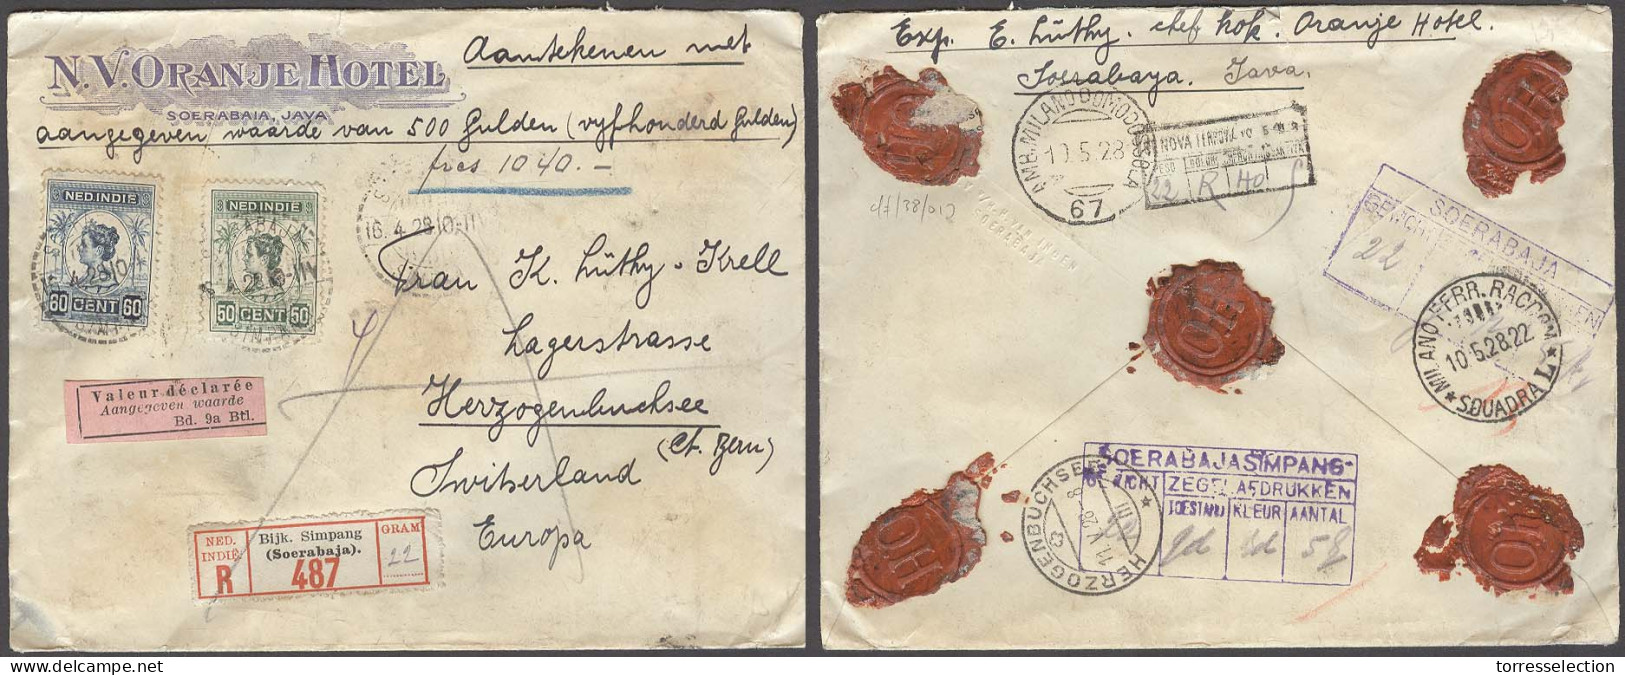 Aantekenen met
N.V. ORANJE HOTEL
SOERABAIA, JAVA
aangegeven waarde van 500 Gulden (vijfhonderd Gulden)
frcs 1040.-
NED. INDIË
60 CENT 60
NED. INDIË
50 CENT 50
16.4.28
Frau K. Lüthy-Krell
Lagerstrasse
Herzogenbuchsee
(Ct. Bern)
Switserland
Europa
Valeur déclarée
Aangegeven waarde
Bd. 9a Btl.
NED. INDIË
R
Bijk. Simpang
(Soerabaja).
487
GRAM
22
Exp. E. Lüthy. chef kok. Oranje Hotel.
Soerabaya. Java.
AMB. MILANO DOMODOSSOLA
10.5.28
67
22 R 140
OH
OH
OH
OH
OH
SOERABAJA
22
MILANO FERR. RACCOM
10.5.28.22
SQUADRA L
SOERABAJA SIMPANG
ZEGELAFDRUKKEN
TOESTAND KLEUR AANTAL
gd rd 5
HERZOGENBUCHSEE
torresselection